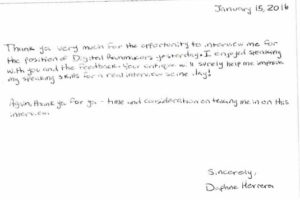 January 15, 2016
Thank you very much for the opportunity to interview me for
the position of Digital yesterday. I enjoyed speaking
with you and the feedback. Your critique will surely help me improve
my speaking skills for a real interview some day!
Again, thank you for time and consideration on me in on this
interview.
Sincerely,
Daphne Herrera